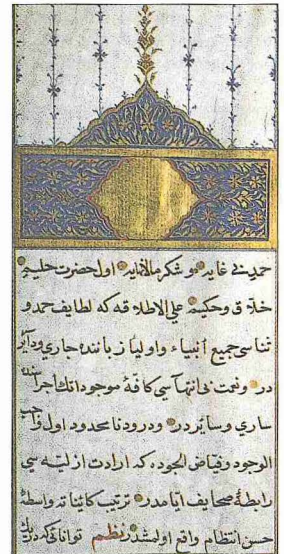 حمد بی غایه و شکر مالانهایه اول حضرت حلیم
خلاق و حکیم علی الاطلاقه که لطایف حمد و
ثناسی جمیع أنبیاء و اولیا زباننده جاری و دایر
در و نعمت بی انتهاسی کافهٔ موجوداتک اجراسنده
ساری و سایر در و درود نامحدود اول واجب
الوجود و فیاض الجوده که ارادت ازلیه سی
رابطهٔ صحایف ایامدر ترتیب کایناته واسطهٔ
حسن انتظام واقع اولمشدر نظم توانایی که دریك